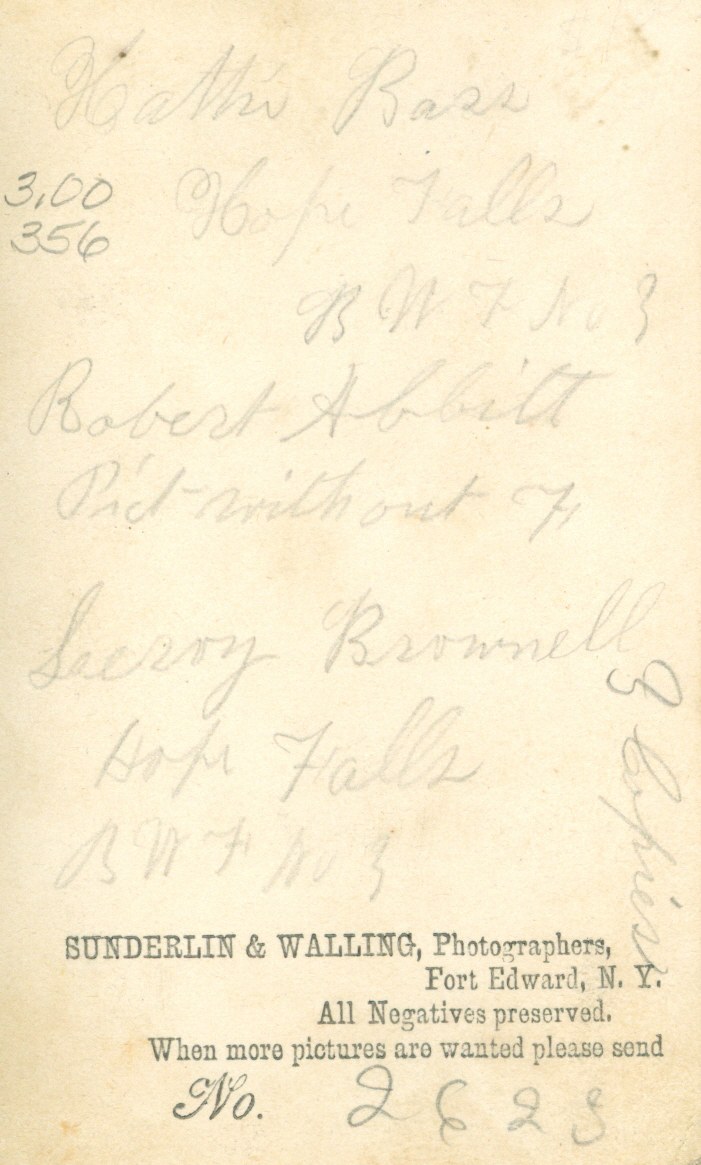 Hattie Bass
3.00
Hope Falls
356
B W F No 3
Robert Abbitt
Pict without F
Leeroy Brownell
Hope Falls
B W F No 3
3 Copies
SUNDERLIN & WALLING, Photographers,
Fort Edward, N. Y.
All Negatives preserved.
When more pictures are wanted please send
No. 2623